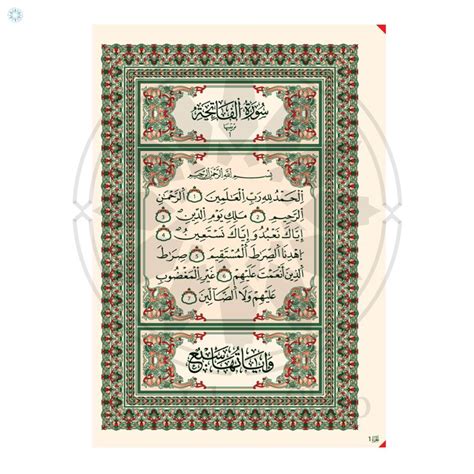 سُورَةُ الْفَاتِحَةِ
ترتيبها
١
بِسْمِ اللَّهِ الرَّحْمَٰنِ الرَّحِيمِ
اِلْحَمْدُ لِلهِ رَبِّ الْعَٰلَمِينَ ١ اَلرَّحْمَٰنِ
اِلرَّحِيمِ ٢ مَلِكِ يَوْمِ الدِّينِ ٣
إِيَّاكَ نَعْبُدُ وَإِيَّاكَ نَسْتَعِينُ ٤
اِهْدِنَا الصِّرَٰطَ الْمُسْتَقِيمَ ٥ صِرَٰطَ
الَّذِينَ أَنْعَمْتَ عَلَيْهِمْ ٦ غَيْرِ الْمَغْضُوبِ
عَلَيْهِمْ وَلَا الضَّآلِّينَ ٧
وَآيَاتُهَا سَبْعٌ
1